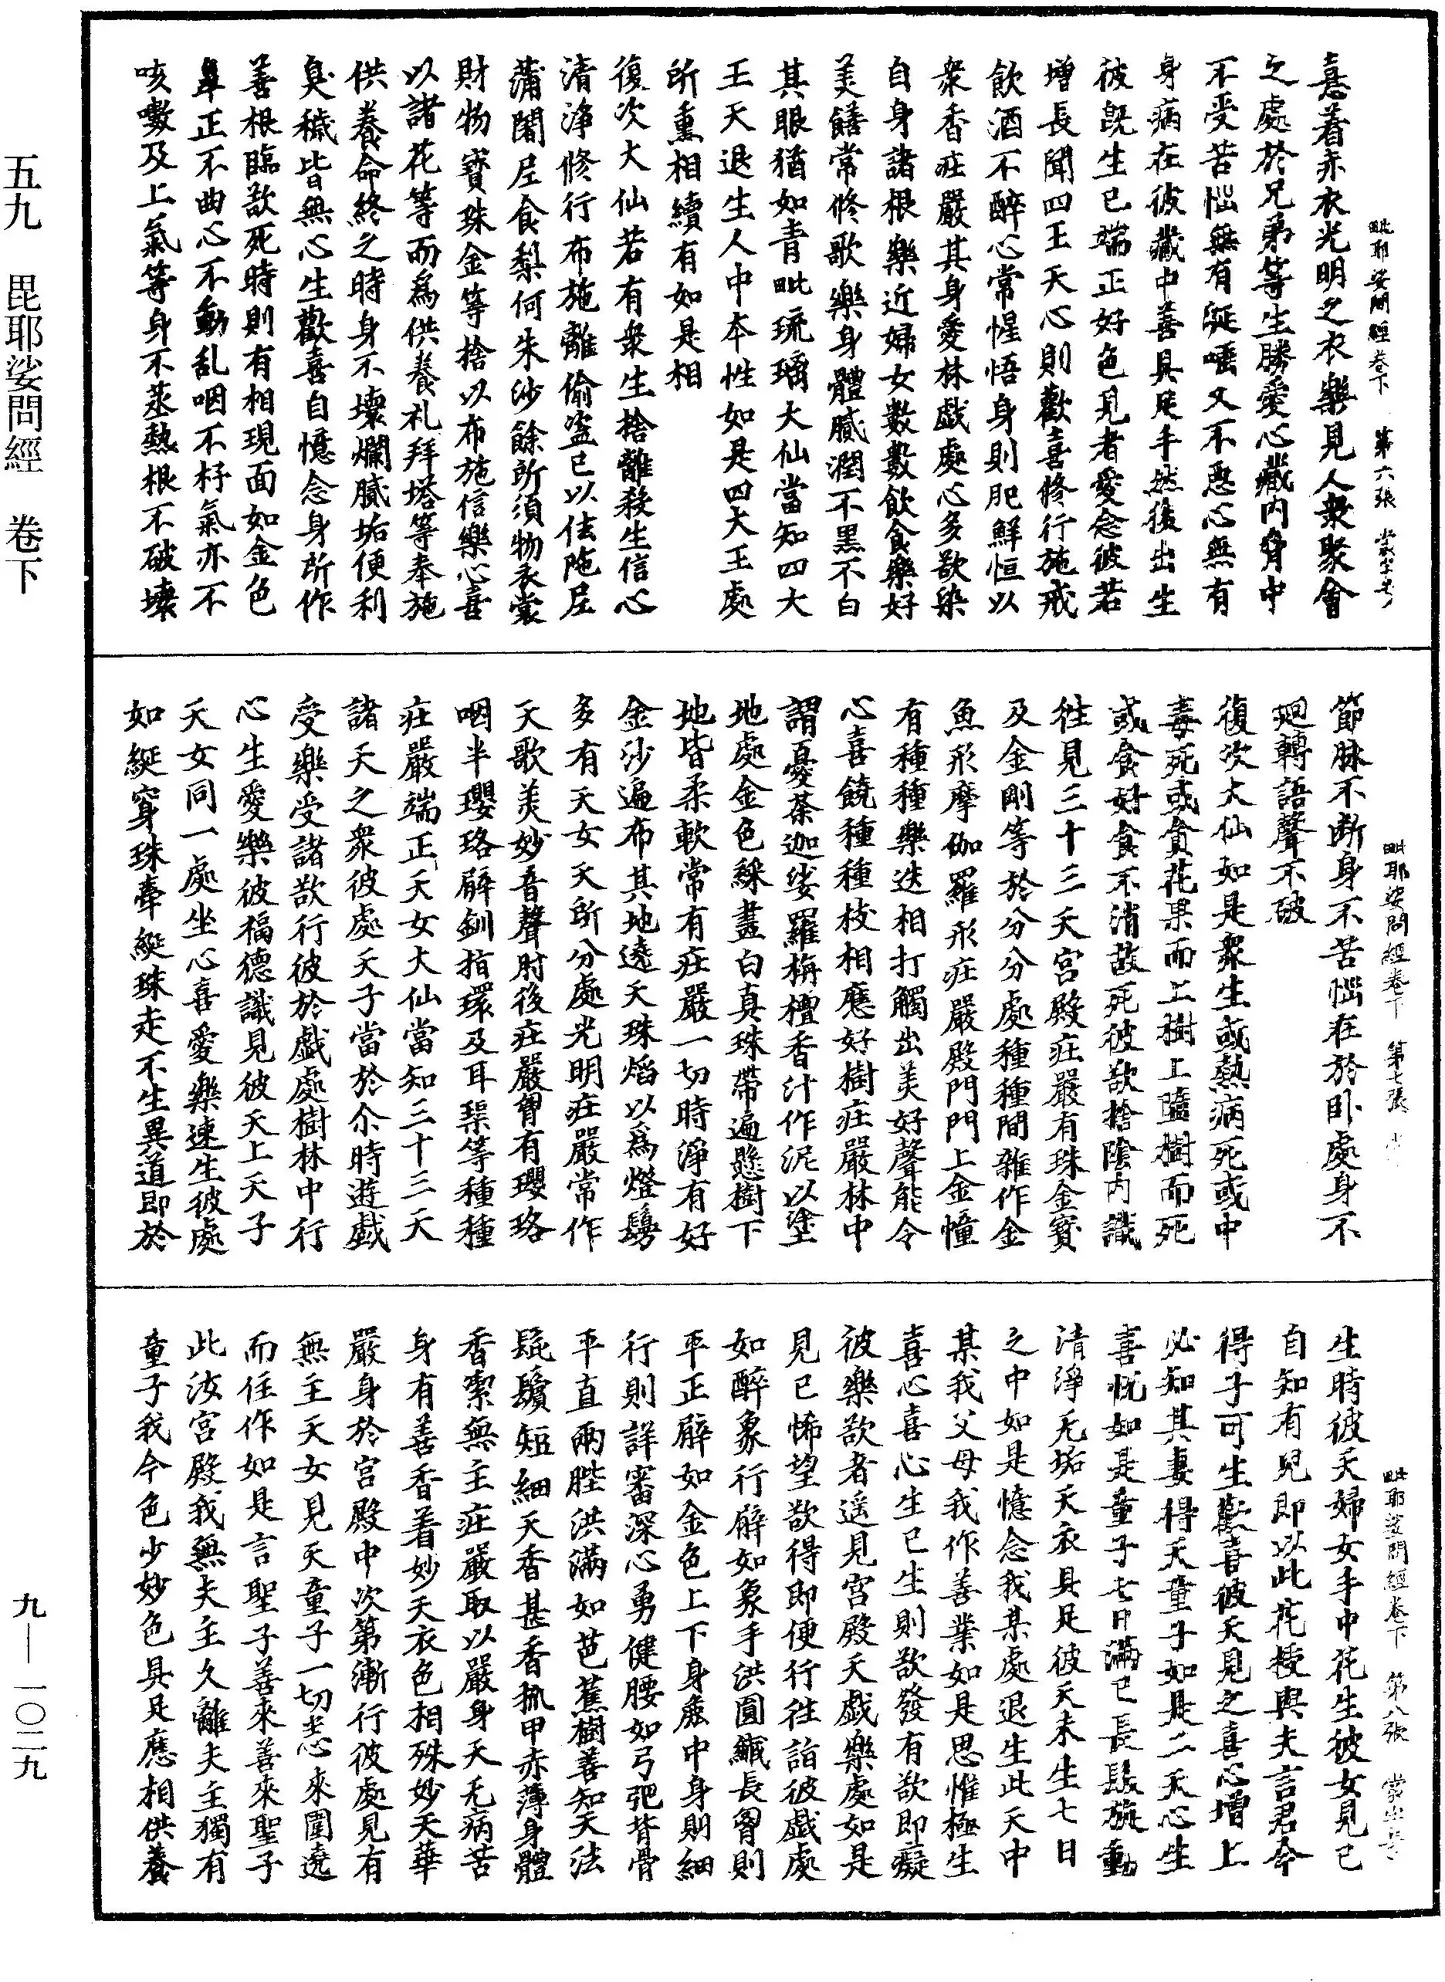 五九 毘耶娑問經 卷下
九—一〇二九
毗耶娑問經卷下 第六張
憙着赤衣光明之衣樂見人衆聚會
之處於兄弟等生勝愛心藏内身中
不受苦惱無有涎唾又不惡心無有
身病在彼藏中善具足手然後出生
彼旣生已端正好色見者愛念彼若
增長聞四王天心則歡喜修行施戒
飲酒不醉心常惺悟身則肥鮮恒以
衆香莊嚴其身愛林戲處心多欲染
自身諸根樂近婦女數數飲食樂好
美饍常修歌樂身體膩潤不黑不白
其眼猶如青毗琉璃大仙當知四大
王天退生人中本性如是四大王處
所熏相續有如是相
復次大仙若有衆生捨離殺生信心
清淨修行布施離偷盜已以佉陁尼
蒲闍尼食梨何朱沙餘所須物衣裳
財物寶珠金等捨以布施信樂心喜
以諸花等而爲供養礼拜塔等奉施
供養命終之時身不壞爛膩垢便利
臭穢皆無心生歡喜自憶念身所作
善根臨欲死時則有相現面如金色
鼻正不曲心不動乱咽不杼氣亦不
咳嗽及上氣等身不蒸熱根不破壞
毗耶娑問經卷下 第七張
節脉不斷身不苦惱在於卧處身不
迴轉語聲不破
復次大仙如是衆生或熱病死或中
毒死或貪花果而上樹上墮樹而死
或食好食不消故死彼欲捨陰内識
徃見三十三天宮殿莊嚴有珠金寳
及金剛等於分分處種種間雜作金
魚形摩伽羅形莊嚴殿門門上金幢
有種種樂迭相打觸出美好聲能令
心喜饒種種枝相應好樹莊嚴林中
謂憂荼迦娑羅栴檀香汁作泥以塗
地處金色綵畫白真珠帶遍懸樹下
地皆柔軟常有莊嚴一切時淨有好
金沙遍布其地遶天珠焰以爲燈鬘
多有天女天所分處光明莊嚴常作
天歌美妙音聲肘後莊嚴胷有瓔珞
咽半瓔珞臂釧指環及耳璖等種種
莊嚴端正天女大仙當知三十三天
諸天之衆彼處天子當於尒時遊戲
受樂受諸欲行彼於戲處樹林中行
心生愛樂彼福德識見彼天上天子
天女同一處坐心喜愛樂速生彼處
如綖穿珠牽綖珠走不生異道即於
毗耶娑問經卷下 第八張
生時彼天婦女手中花生彼女見已
自知有兒即以此花授與夫言君今
得子可生歡喜彼天見之喜心增上
必知其妻得天童子如是二天心生
喜悅如是童子七日滿已長髮旋動
清淨无垢天衣具足彼天未生七日
之中如是憶念我某處退生此天中
某我父母我作善業如是思惟極生
喜心喜心生已生則欲發有欲即癡
彼樂欲者遥見宮殿天戲樂處如是
見已悕望欲得即便行往詣彼戲處
如醉象行臂如象手洪圓纎長胷則
平正臂如金色上下身麁中身則細
行則詳審深心勇健腰如弓弝背骨
平直兩䏶洪滿如芭蕉樹善知天法
髭鬚短細天香甚香抓甲赤薄身體
香潔無主莊嚴取以嚴身天无病苦
身有善香着妙天衣色相殊妙天華
嚴身於宮殿中次第漸行彼處見有
無主天女見天童子一切悉來圍遶
而住作如是言聖子善來善來聖子
此汝宮殿我無夫主久離夫主獨有
童子我今色少妙色具足應相供養